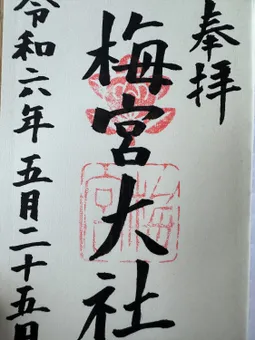 奉拝
梅宮大社
令和六年五月二十五日
梅宮